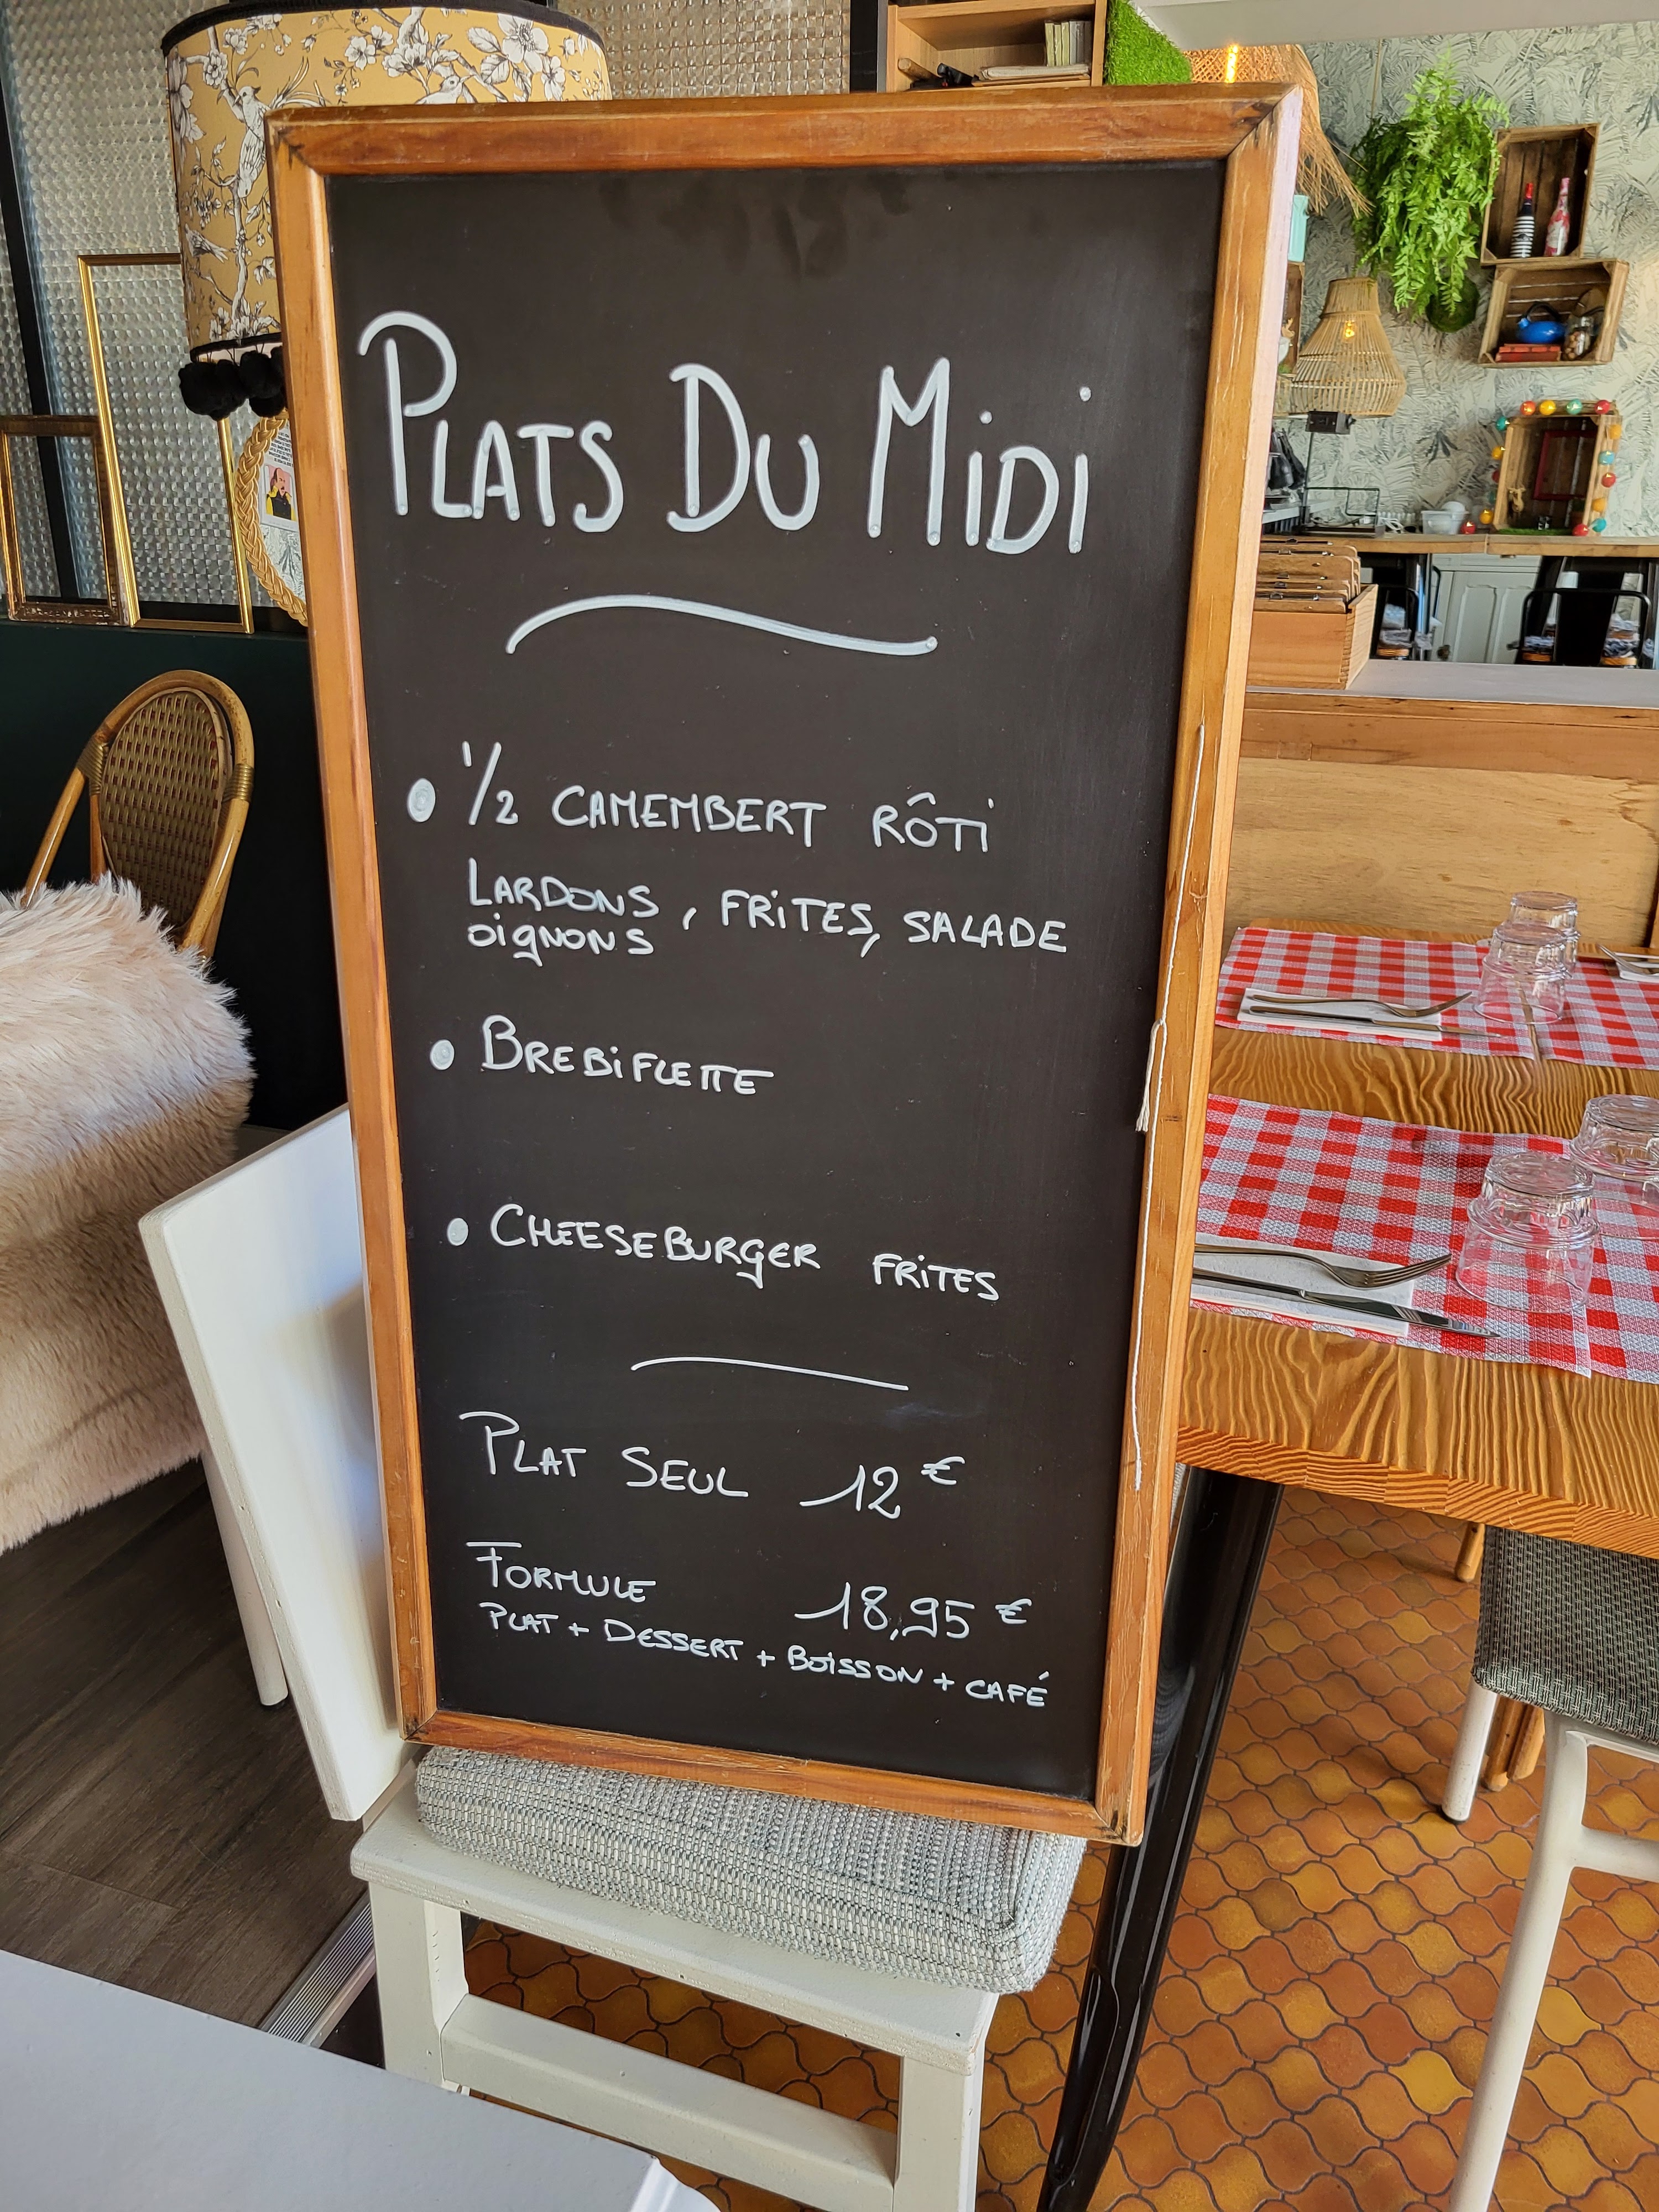 PLATS DU MiDi
• 1/2 CAMEMBERT RÔTi
LARDONS, FRiTES, SALADE
OigNONS
• BREBiFLETTE
• CHEESEBURgER FRiTES
PLAT SEUL 12 €
FORMULE 18,95 €
PLAT + DESSERT + BOiSSON + CAFÉ